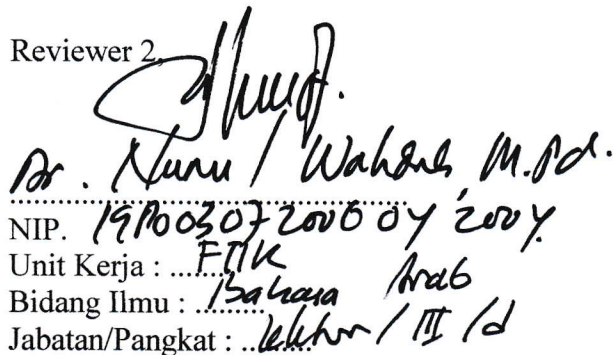 Reviewer 2,
Dr. Nurul Wahdah, M.Pd.
NIP. 19800307 200604 2004
Unit Kerja : FTIK
Bidang Ilmu : Bahasa Arab
Jabatan/Pangkat : Lektor / III / d